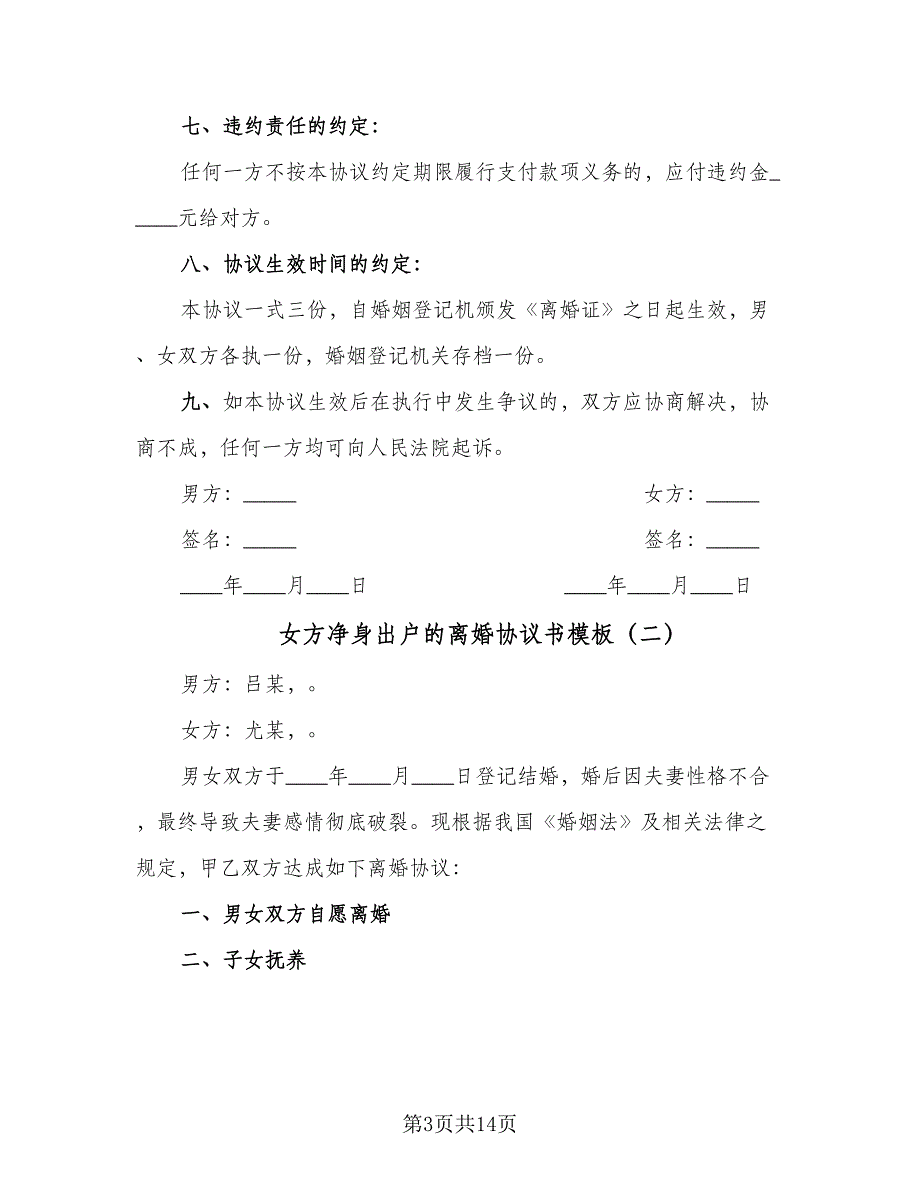 七、违约责任的约定：
任何一方不按本协议约定期限履行支付款项义务的，应付违约金_
____元给对方。
八、协议生效时间的约定：
本协议一式三份，自婚姻登记机颁发《离婚证》之日起生效，男
、女双方各执一份，婚姻登记机关存档一份。
九、如本协议生效后在执行中发生争议的，双方应协商解决，协
商不成，任何一方均可向人民法院起诉。
男方：_____ 女方：_____
签名：_____ 签名：_____
____年____月____日 ____年____月____日
女方净身出户的离婚协议书模板（二）
男方：吕某，。
女方：尤某，。
男女双方于____年____月____日登记结婚，婚后因夫妻性格不合
，最终导致夫妻感情彻底破裂。现根据我国《婚姻法》及相关法律之
规定，甲乙双方达成如下离婚协议：
一、男女双方自愿离婚
二、子女抚养
第3页共14页